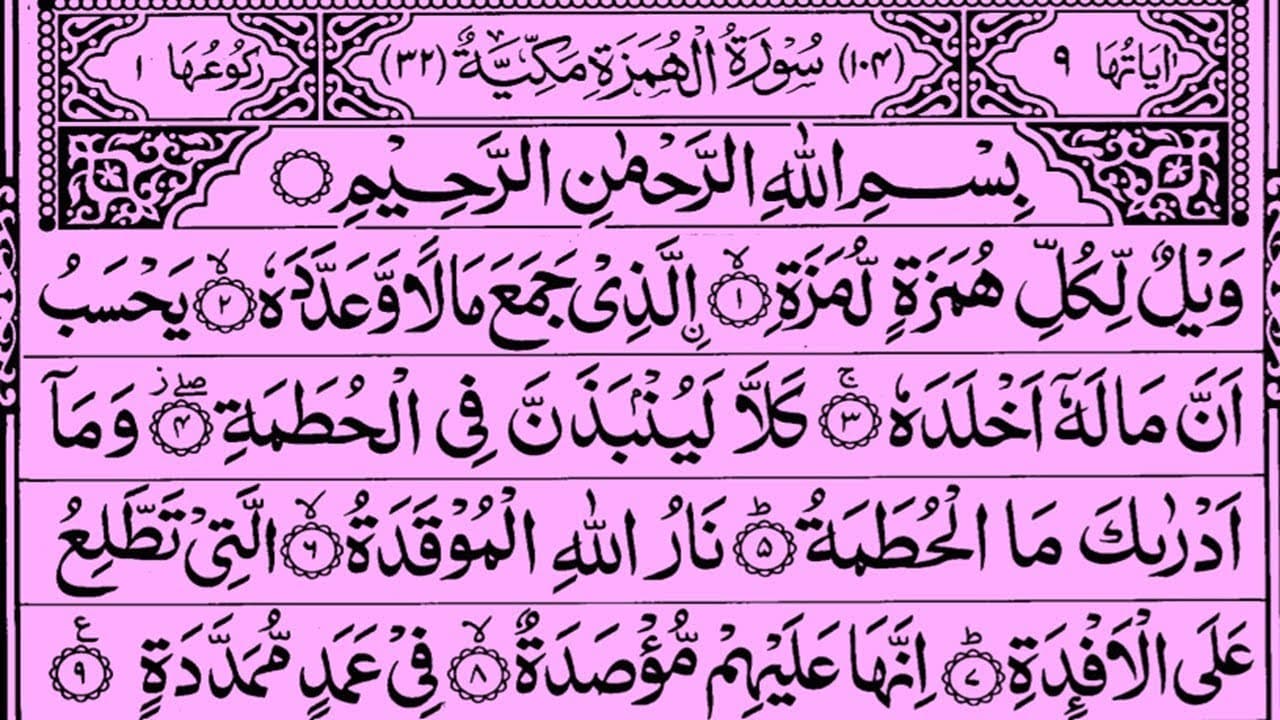 اٰيَاتُهَا ٩ (١٠٤) سُوْرَةُ الْهُمَزَةِ مَكِّيَّةٌ (٣٢) رُكُوْعُهَا ١
بِسْمِ اللّٰهِ الرَّحْمٰنِ الرَّحِيْمِ
وَيْلٌ لِّكُلِّ هُمَزَةٍ لُّمَزَةِۙ ۝١ اِ۟لَّذِىْ جَمَعَ مَالًا وَّعَدَّدَهٗۙ ۝٢ يَحْسَبُ
اَنَّ مَالَهٗۤ اَخْلَدَهٗۚ ۝٣ كَلَّا لَيُنْۢبَذَنَّ فِى الْحُطَمَةِۖز ۝٤ وَمَاۤ
اَدْرٰىكَ مَا الْحُطَمَةُؕ ۝٥ نَارُ اللّٰهِ الْمُوْقَدَةُۙ ۝٦ الَّتِىْ تَطَّلِعُ
عَلَى الْاَفْـِٕدَةِؕ ۝٧ اِنَّهَا عَلَيْهِمْ مُّؤْصَدَةٌۙ ۝٨ فِىْ عَمَدٍ مُّمَدَّدَةٍ ۝٩ ع